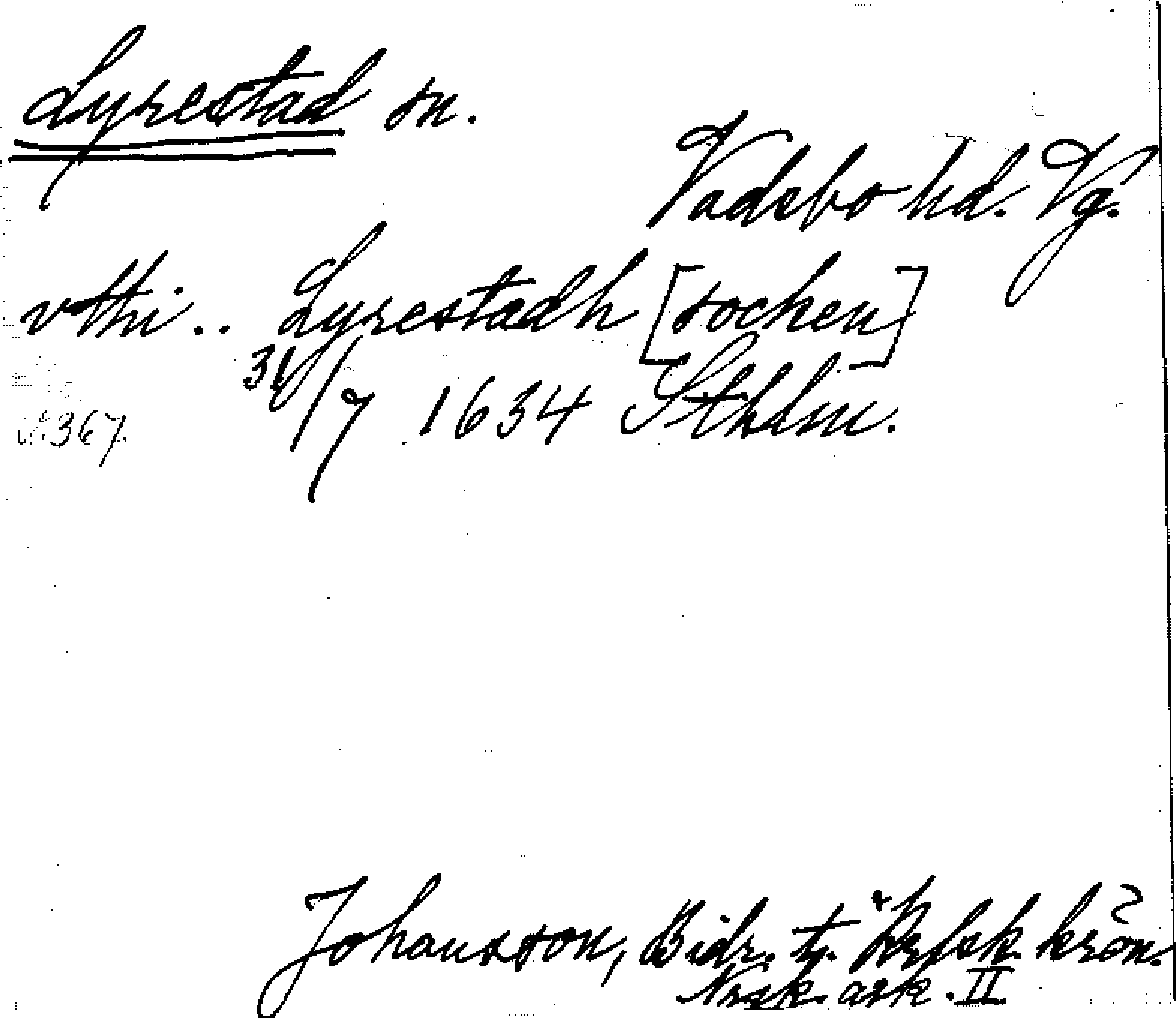 Lyrestad sn.
Vadsbo hd. Vg.
vthi.. Lyrestadh [sochen]
31/7 1634 Sthlm.
nr 367.
Johansson, Bidr. t. krön.
ark. II